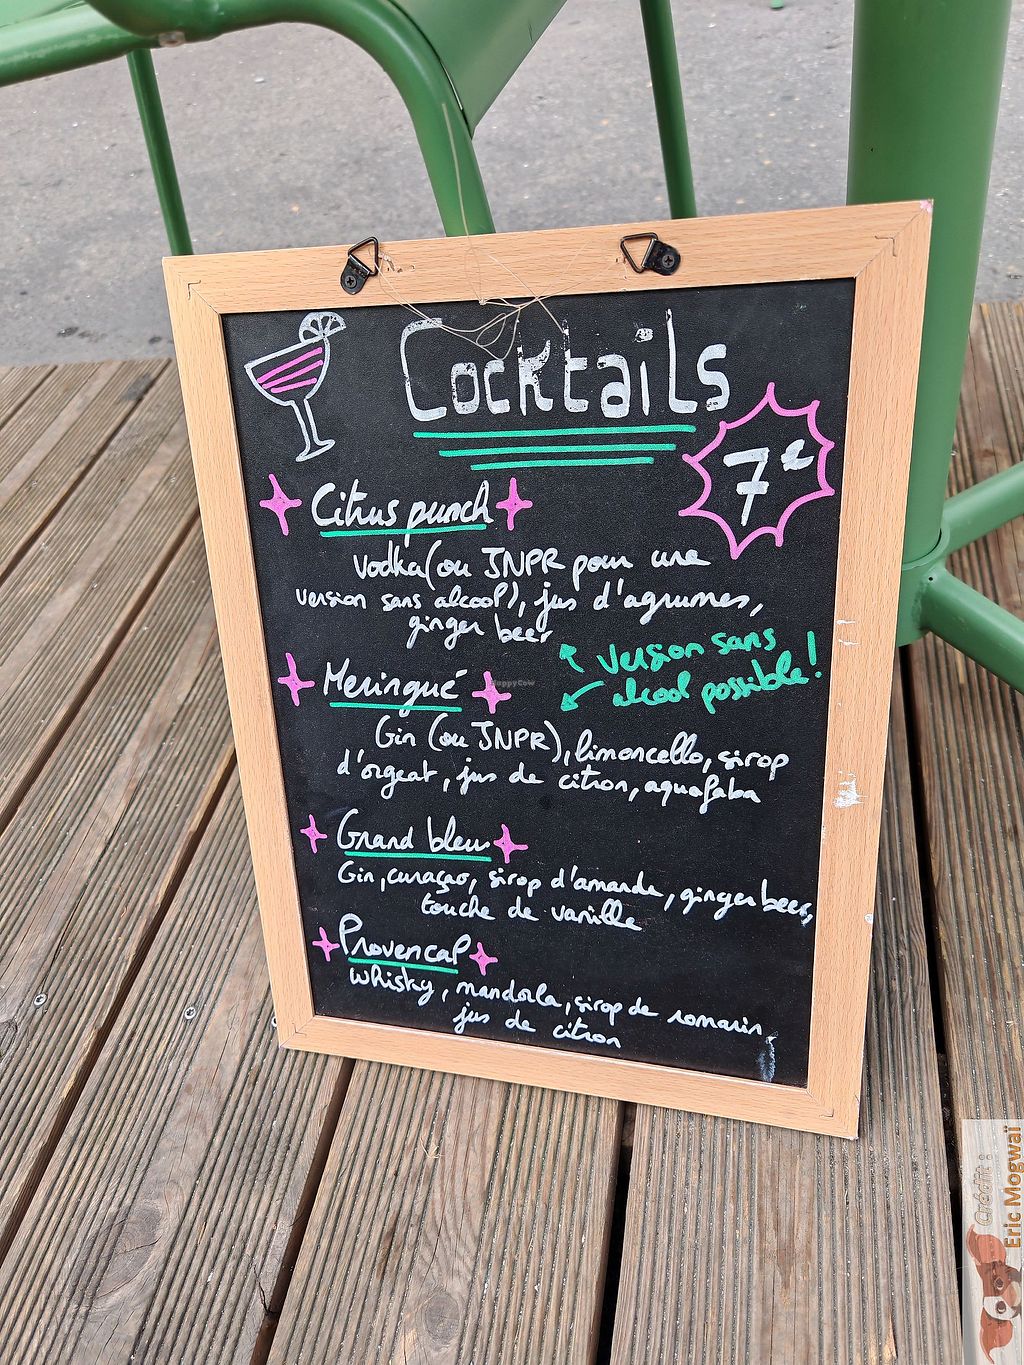 Cocktails
7€
Citrus punch
Vodka (ou JNPR pour une
version sans alcool), jus d'agrumes,
ginger beer
Version sans
alcool possible!
Meringué
Gin (ou JNPR), limoncello, sirop
d'orgeat, jus de citron, aquafaba
Grand bleu
Gin, curaçao, sirop d'amande, ginger beer,
touche de vanille
Provencal
Whisky, mandorla, sirop de romarin,
jus de citron
HappyCow
Crédit :
Eric Mogwaï